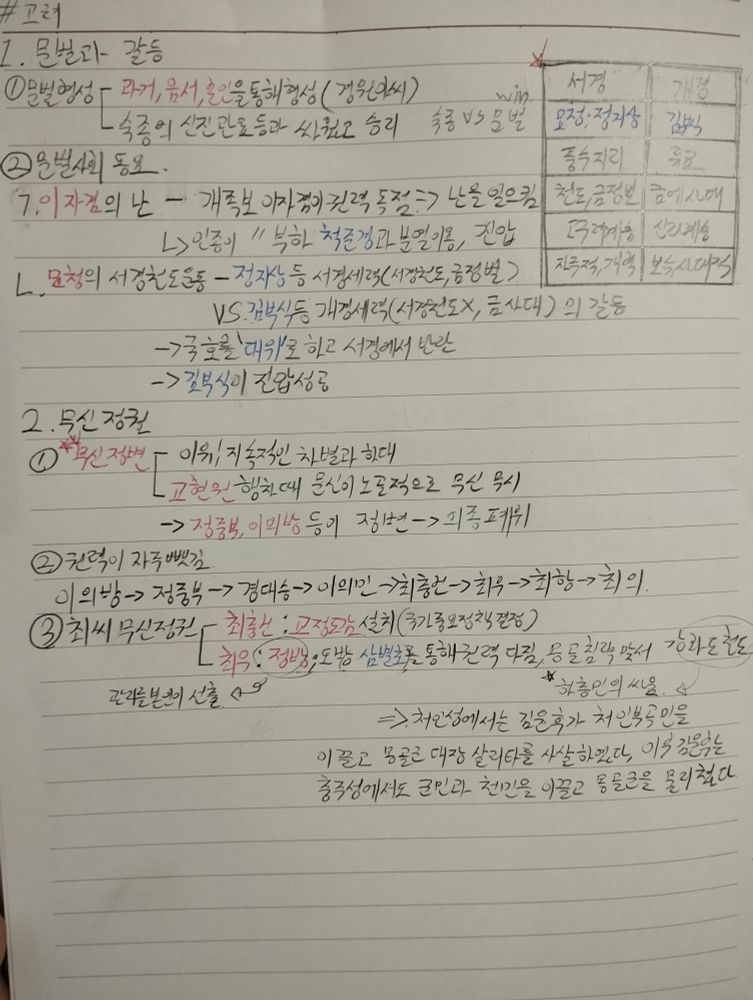 #고려
1. 문벌과 갈등
① 문벌형성 ┌ 과거, 음서, 혼인을 통해 형성 (경원이씨)
└ 숙종의 신진관료등과 싸웠고 승리 숙종 VS 문벌 win
② 문벌사회 동요.
ㄱ. 이자겸의 난 — 개족보 이자겸이 권력 독점 => 난을 일으킴
↳ 인종이 〃 부하 척준경과 분열이용, 진압
ㄴ. 묘청의 서경천도운동 - 정지상 등 서경세력(서경천도, 금정벌)
VS. 김부식등 개경세력(서경천도X, 금사대) 의 갈등
-> 국호를 '대위'로 하고 서경에서 반란
-> 김부식이 진압성공
서경 개경
묘청, 정지상 김부식
풍수지리 유교
천도, 금정벌 금에 사대
고구려계승 신라계승
자주적, 개혁 보수, 사대적
2. 무신정권
① 무신정변 ┌ 이유; 지속적인 차별과 하대
└ 고현원 행차때 문신이 노골적으로 무신 무시
-> 정중부, 이의방 등이 정변 -> 의종 폐위
② 권력이 자주 뺏김
이의방 -> 정중부 -> 경대승 -> 이의민 -> 최충헌 -> 최우 -> 최항 -> 최의.
③ 최씨 무신정권 ┌ 최충헌 : 교정도감 설치 (국가중요정책결정)
└ 최우 : 정방, 도방, 삼별초를 통해 권력 다짐, 몽골침략 맞서 강화도천도
관리를 본인이 선출 * 하층민의 싸움
=> 처인성에서는 김윤후가 처인부곡민을
이끌고 몽골군 대장 살리타를 사살하였다, 이후 김윤후는
충주성에서도 군민과 천민을 이끌고 몽골군을 물리쳤다